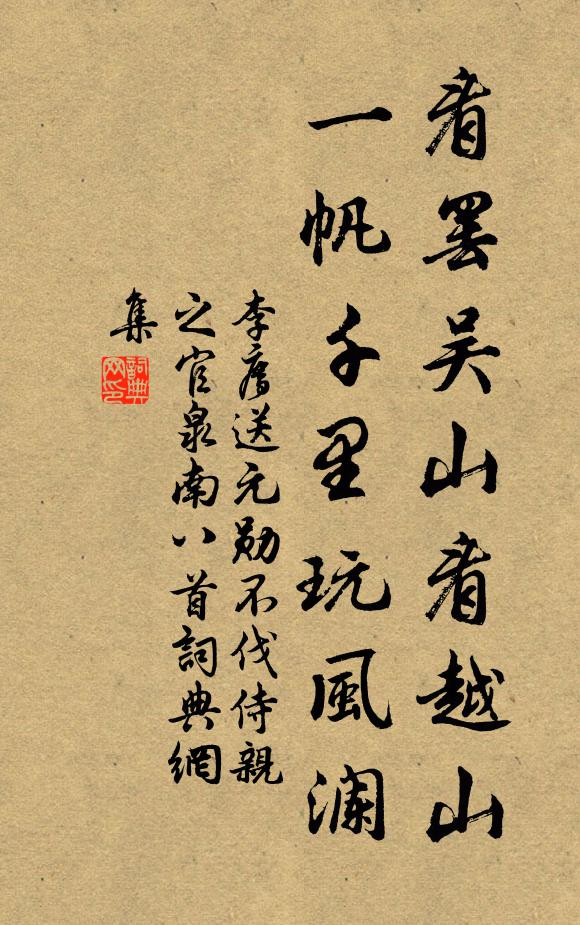 看罢吴山看越山
一帆千里玩風澜
李廌送元勋不伐侍親
之官泉南八首詞典網
集
詞典
网印